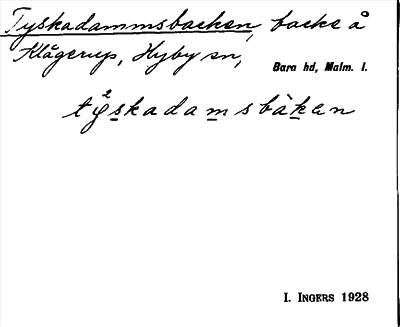 Tyskadammsbacken, backe å
Klågerup, Hyby sn,
Bara hd, Malm. l.
týskadamsbàkan
I. INGERS 1928